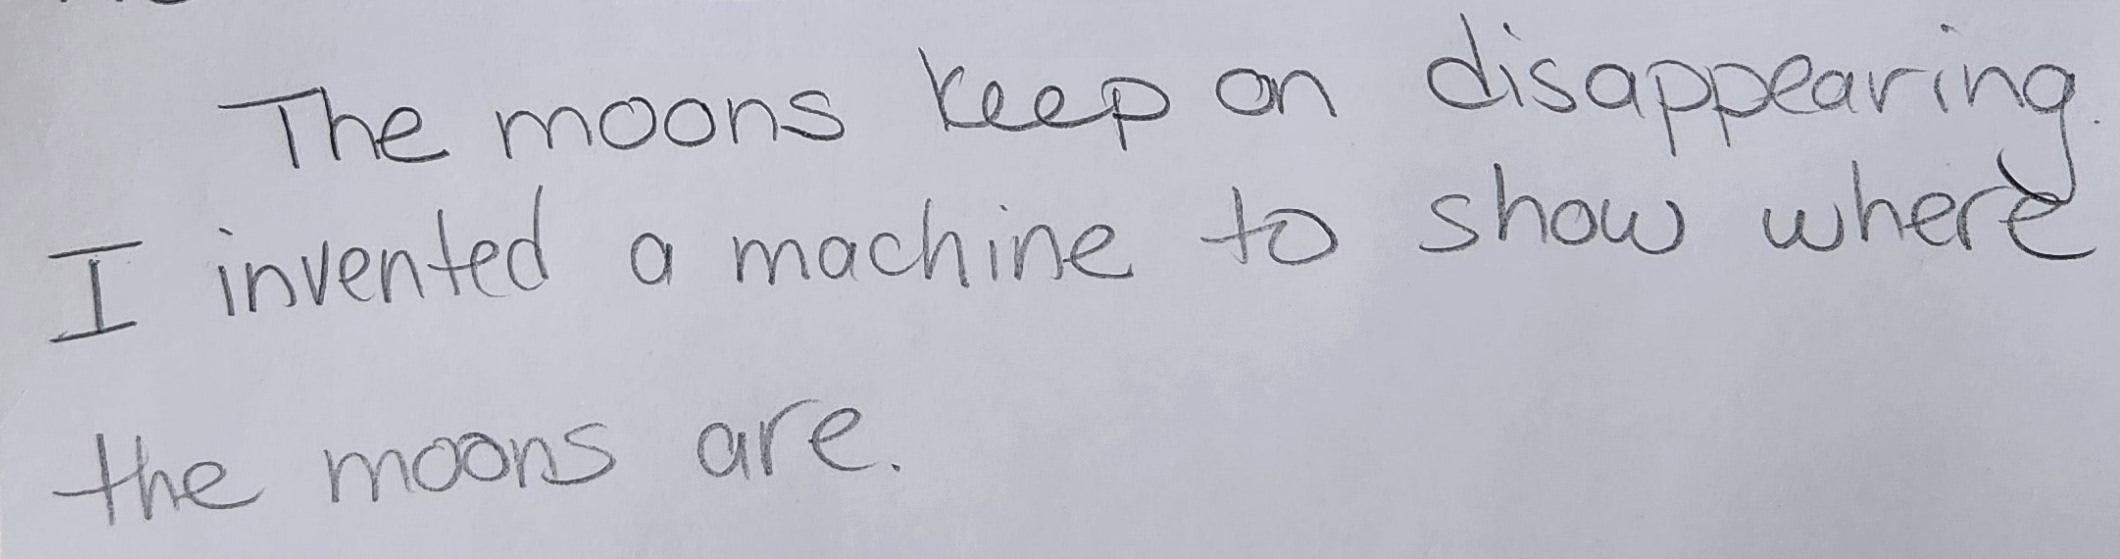 The moons keep on disappearing.
I invented a machine to show where
the moons are.